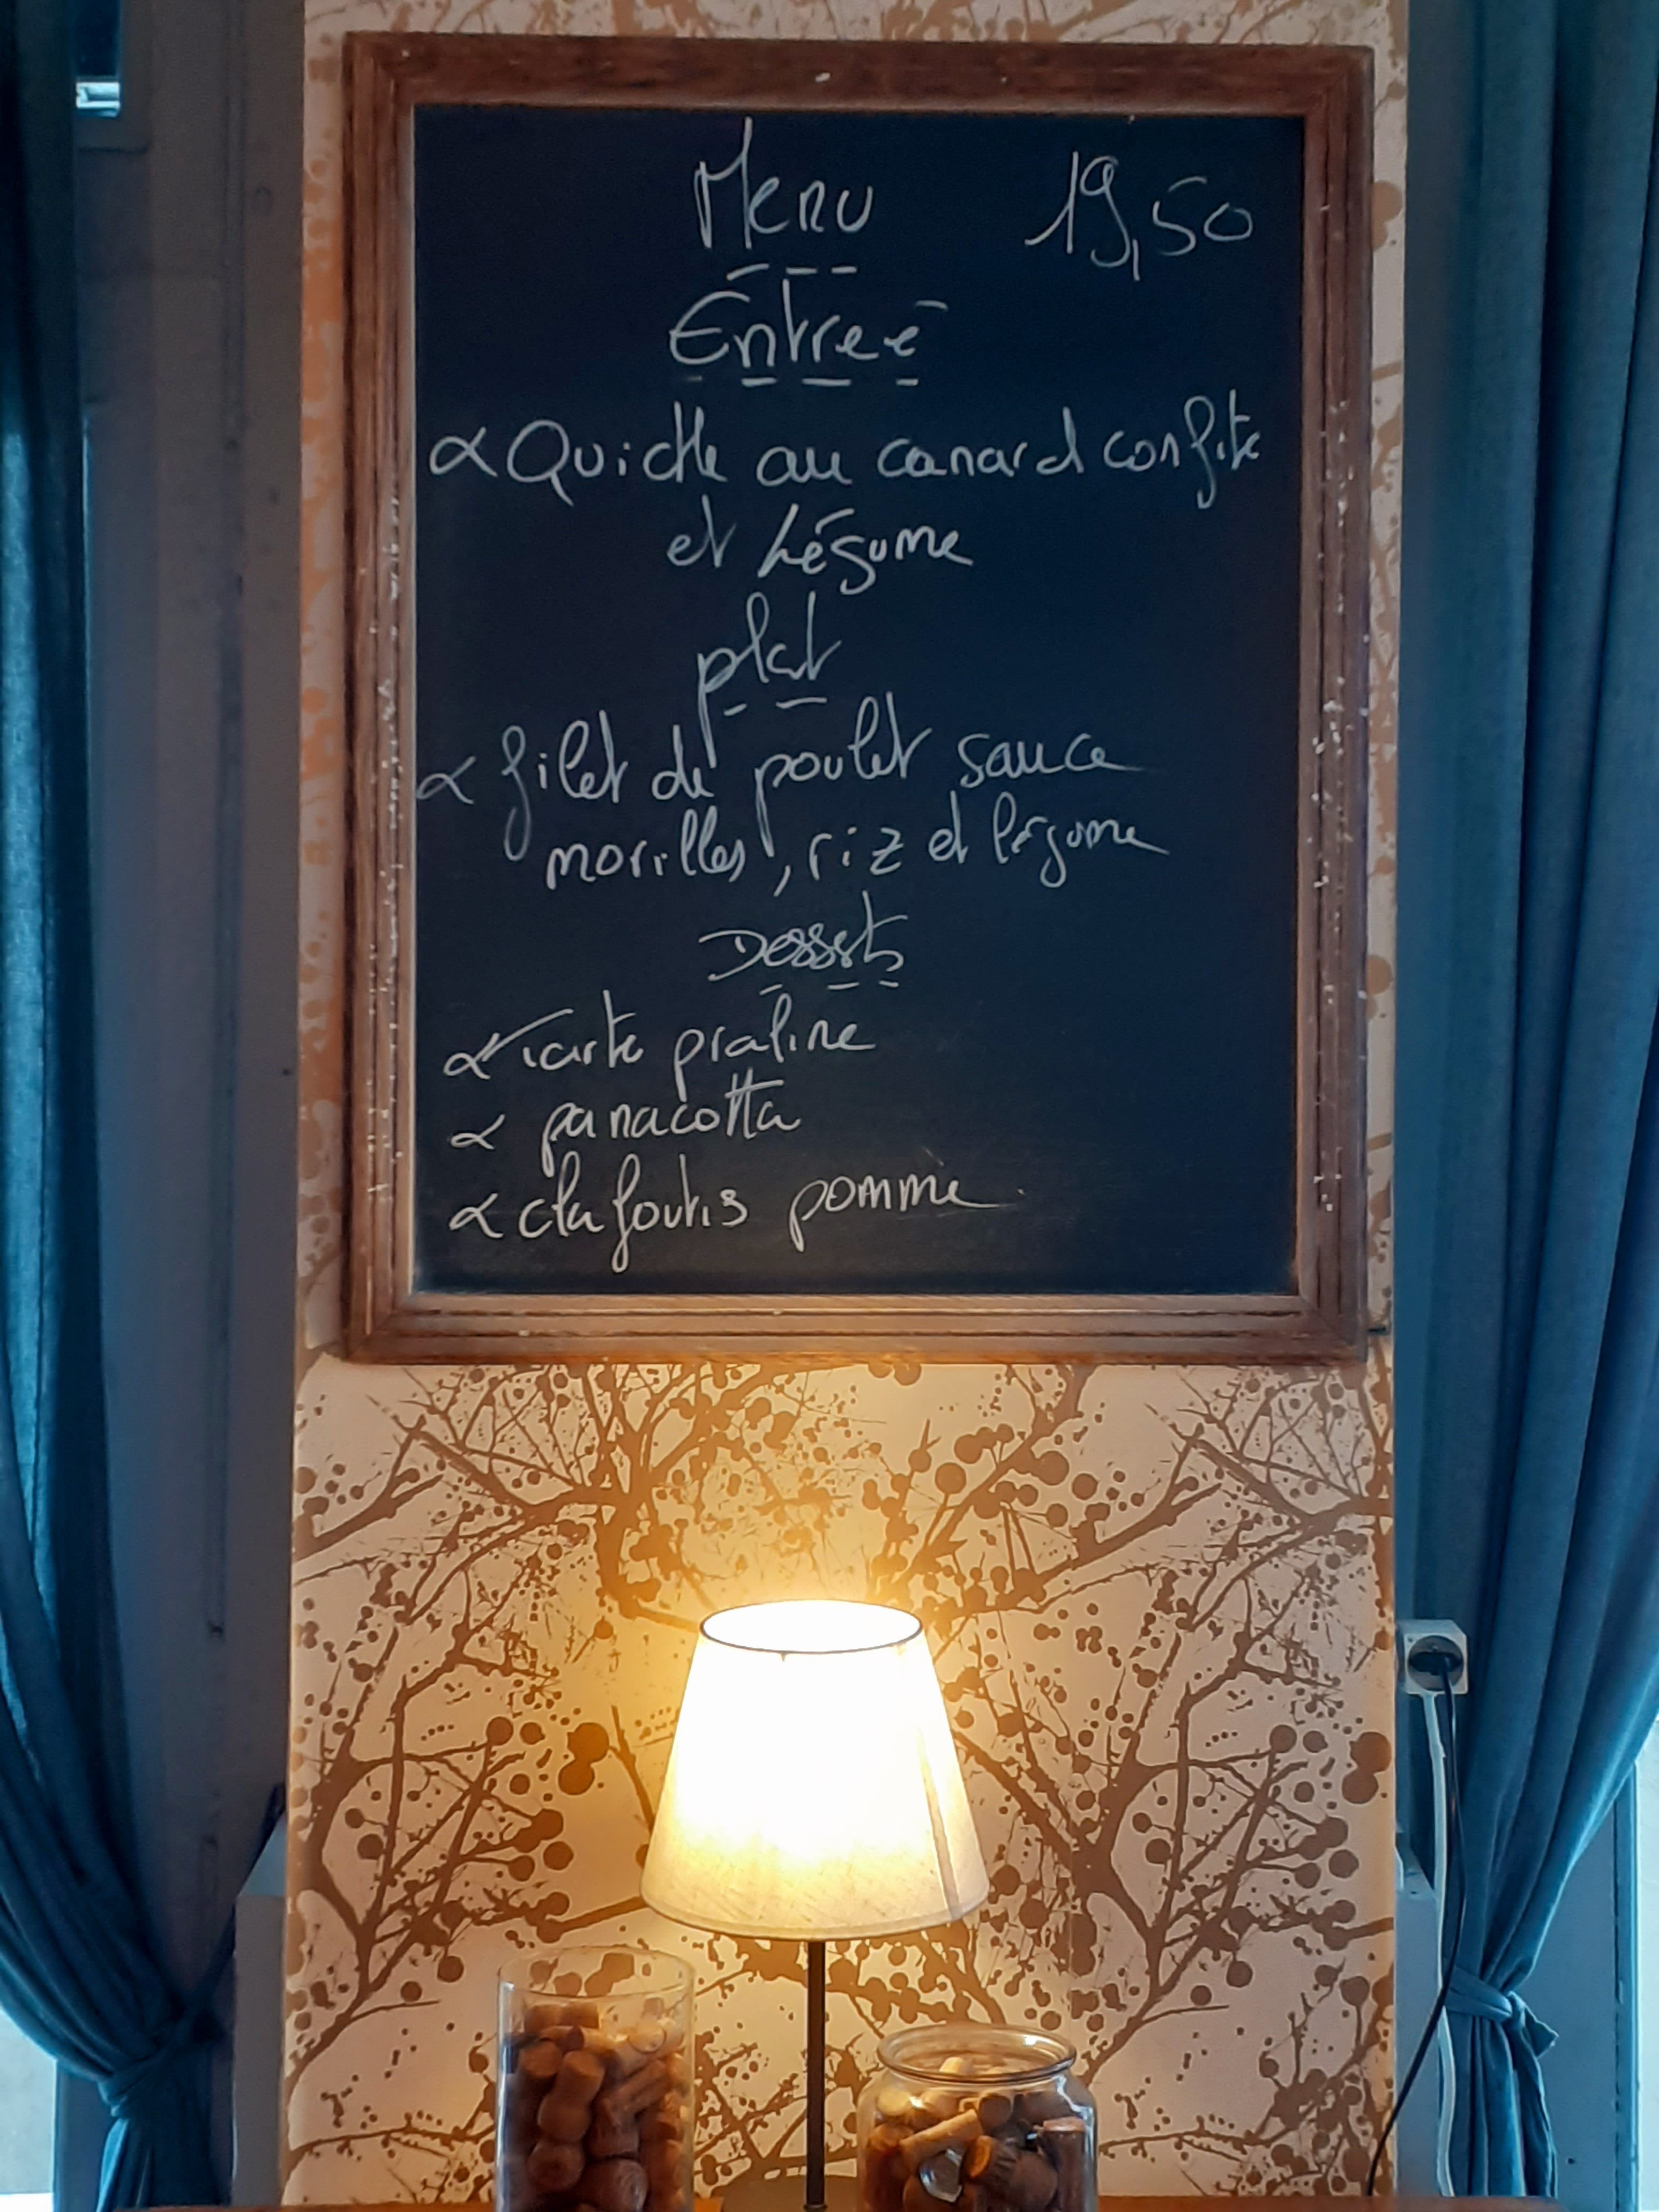 Menu 19,50
Entreé
Quiche au canard confite
et Légume
plat
filet de poulet sauce
morilles, riz et légume
Desserts
tarte praline
panacotta
clafoutis pomme